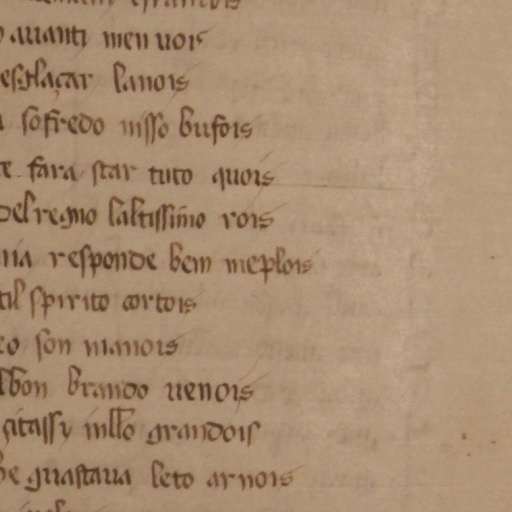 auanti men uois
esglaçar lanois
sofredo nisso bufois
te fara star tuto quois
del regno laltissimo rois
responde bem meplois
til spirito cortois
eo son manois
lbon brando uenois
gitassy grandois
guastaua leto arnois